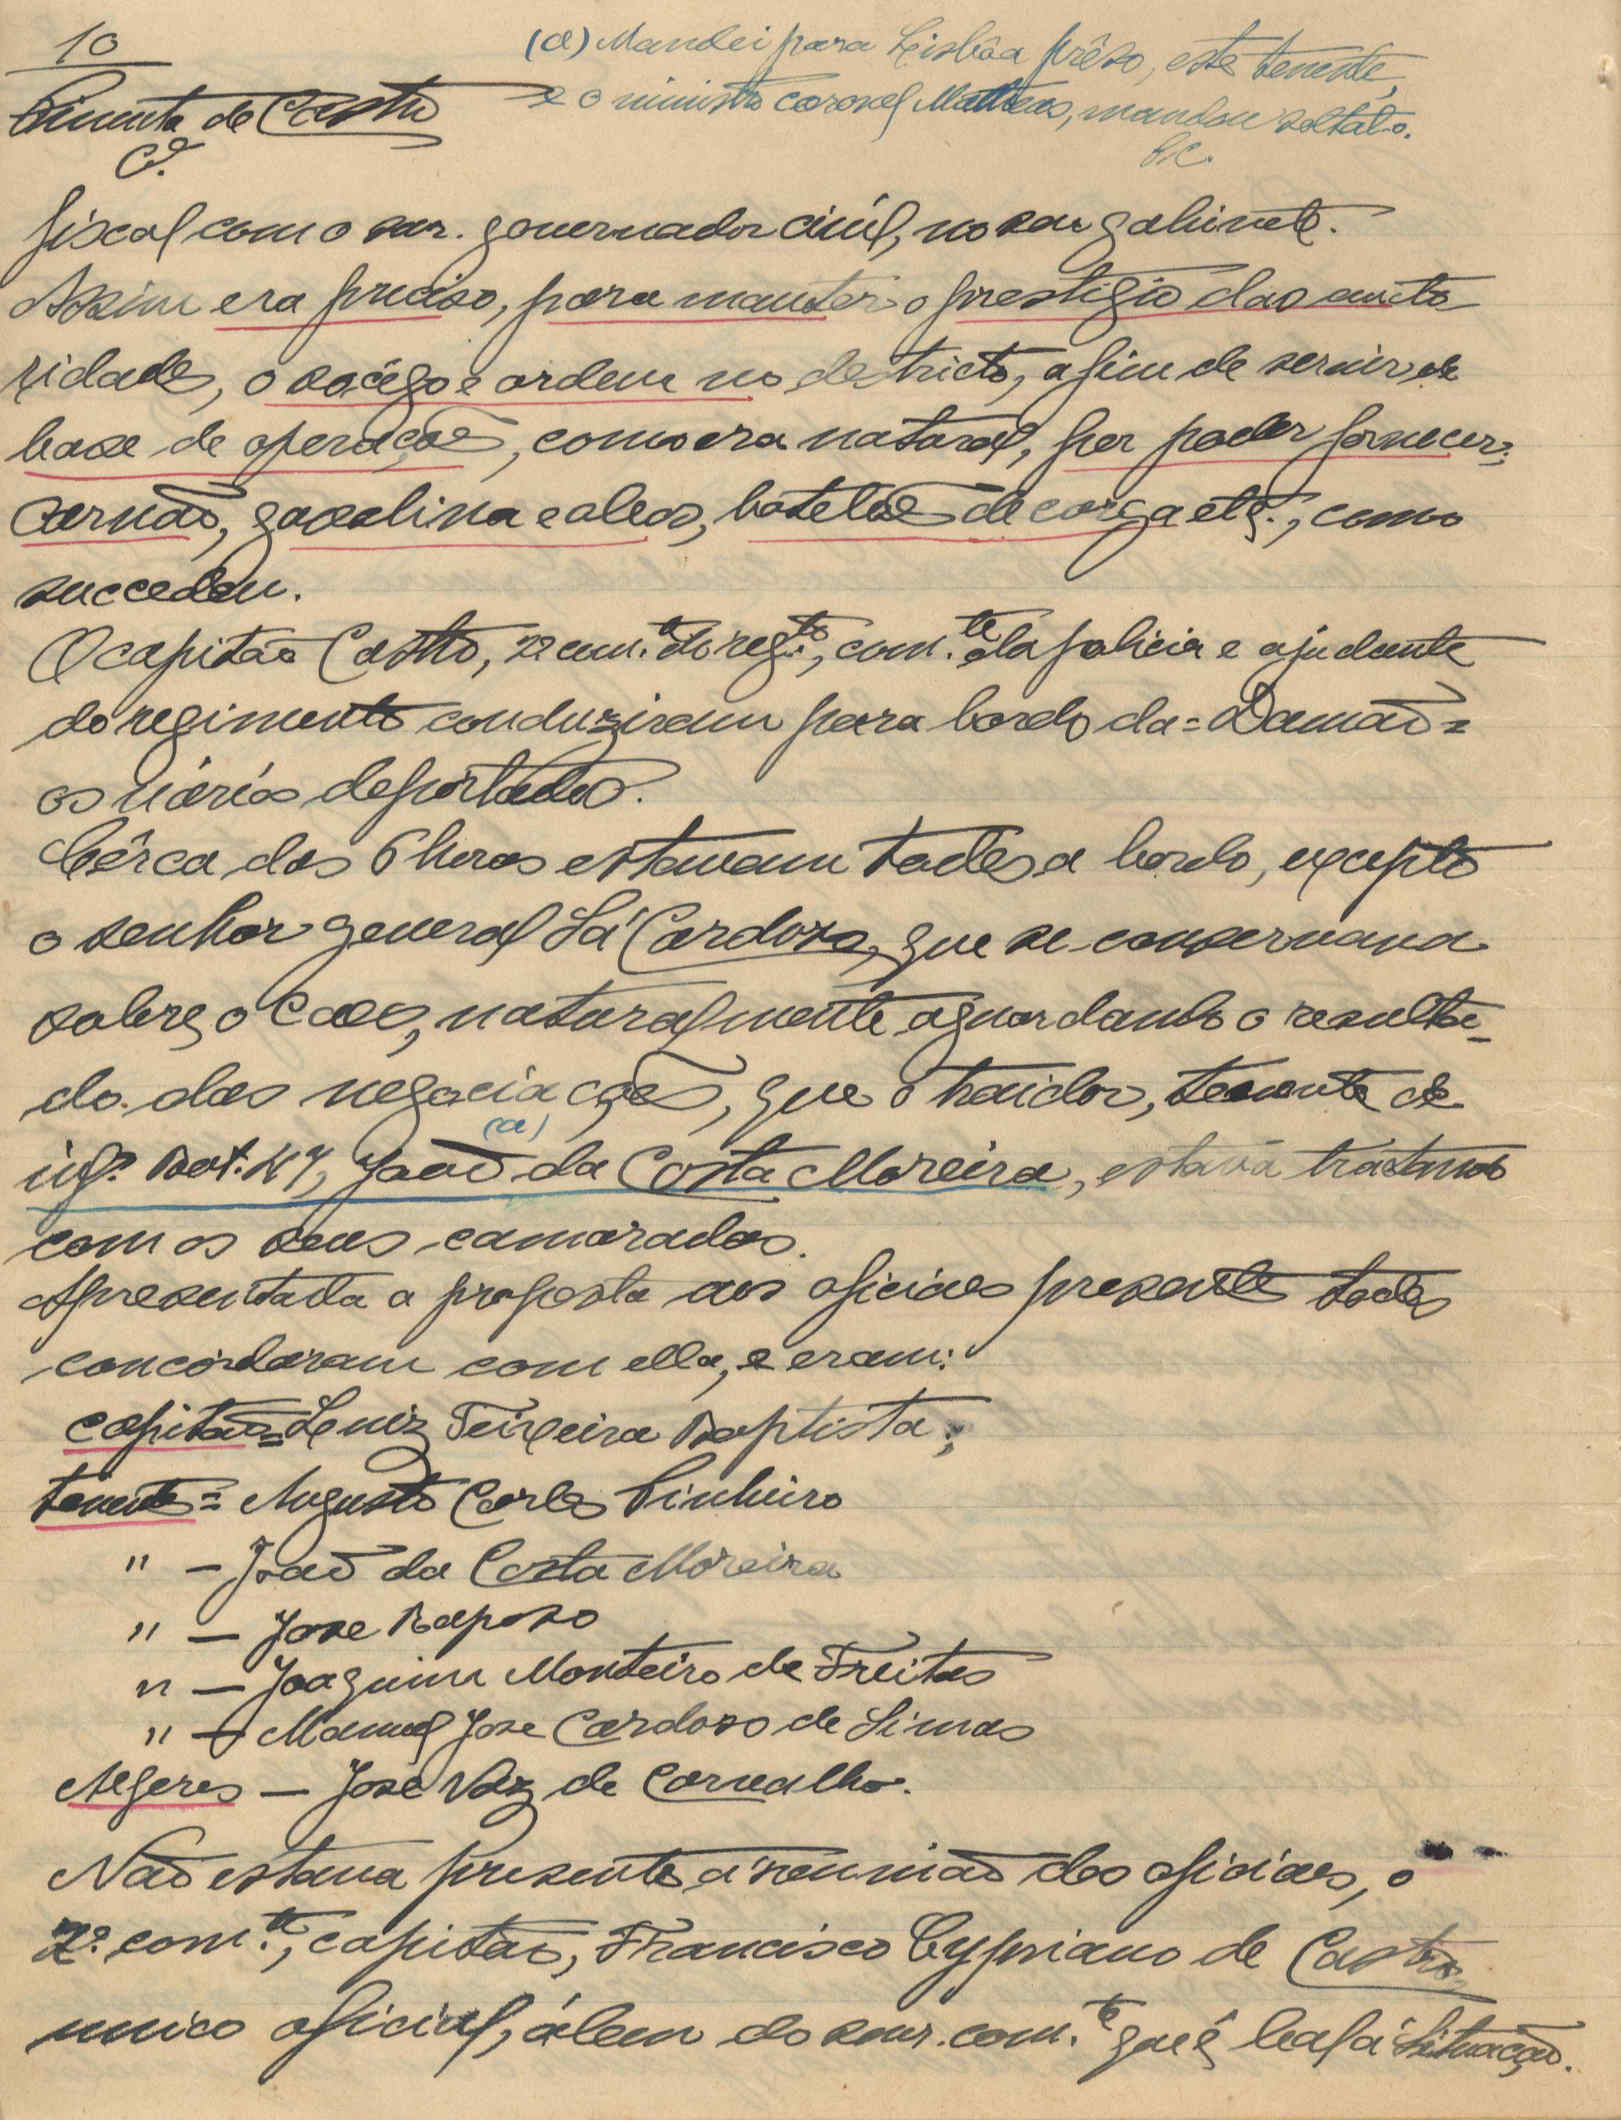 10
Pimenta de Castro
C.el
(a) Mandei para Lisbôa prêso, este tenente,
e o ministro coronel Matheus, mandou soltal-o.
P.C.
fiscal com o snr. governador civil, no seu gabinete.
Assim era preciso, para manter o prestigio das auto-
ridades, o socêgo e ordem no destricto, afim de servir de
base de operações, como era natural, por poder fornecer:
carvão, gasolina e oleos, batelões de carga etc., como
succedeu.
O capitão Castro, 2º com.te do reg.to, com.te da policia e ajudante
do regimento conduziram para bordo da = Damão =
os vários deportados.
Cêrca das 6 horas estavam todos a bordo, excepto
o senhor general Sá Cardoso, que se conservava
sobre o Caes, naturalmente aguardando o resulta-
do das negociações, que o traidor, tenente de
(a)
inf.ª Bat. 47, João da Costa Moreira, estava tratando
com os seus camaradas.
Apresentada a proposta aos oficiaes presentes todos
concordaram com ella, e eram:
capitão = Luiz Teixeira Baptista;
tenente = Augusto Carlos Pinheiro
" - João da Costa Moreira
" - Jose Raposo
" - Joaquim Monteiro de Freitas
" - Manuel Jose Cardoso de Simas
Alferes - José Vaz de Carvalho.
Não estava presente á reunião dos oficiaes, o
2º com.te, capitão, Francisco Cypriano de Castro
unico oficial, álem do snr. com.te que é leal á situação.